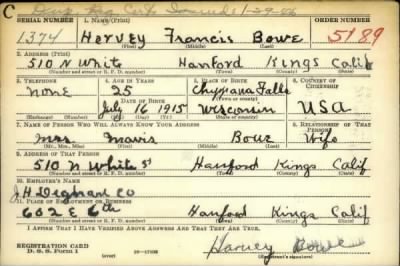 SERIAL NUMBER 1. NAME (Print) ORDER NUMBER
1374 Hervey Francis Bowe 5189
(First) (Middle) (Last)
2. ADDRESS (Print)
510 N White Hanford Kings Calif
(Number and street or R. F. D. number) (Town) (County) (State)
3. TELEPHONE 4. AGE IN YEARS 5. PLACE OF BIRTH 6. COUNTRY OF CITIZENSHIP
none 25 Chypana Falls
DATE OF BIRTH (Town or county)
July 16 1915 Wisconsin USA
(Mo.) (Day) (Yr.) (State or country)
7. NAME OF PERSON WHO WILL ALWAYS KNOW YOUR ADDRESS 8. RELATIONSHIP OF THAT PERSON
Mrs. Bowe Wife
(Mr., Mrs., Miss) (First) (Middle) (Last)
9. ADDRESS OF THAT PERSON
510 N White St Hanford Kings Calif
(Number and street or R. F. D. number) (Town) (County) (State)
10. EMPLOYER'S NAME
J H Co
11. PLACE OF EMPLOYMENT OR BUSINESS
602 E 6th Hanford Kings Calif
(Number and street or R. F. D. number) (Town) (County) (State)
I AFFIRM THAT I HAVE VERIFIED ABOVE ANSWERS AND THAT THEY ARE TRUE.
REGISTRATION CARD
D. S. S. Form 1 (over) Harvey Bowe
(Registrant's signature)